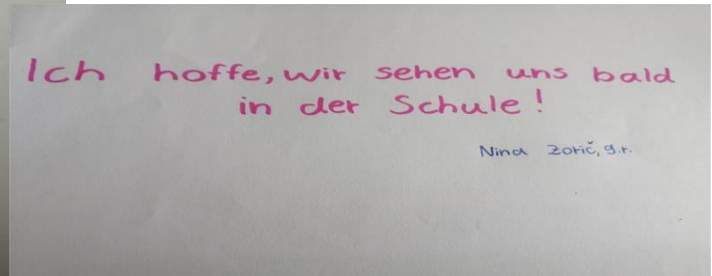 Ich hoffe, wir sehen uns bald
in der Schule!
Nina Zorič, 9.r.